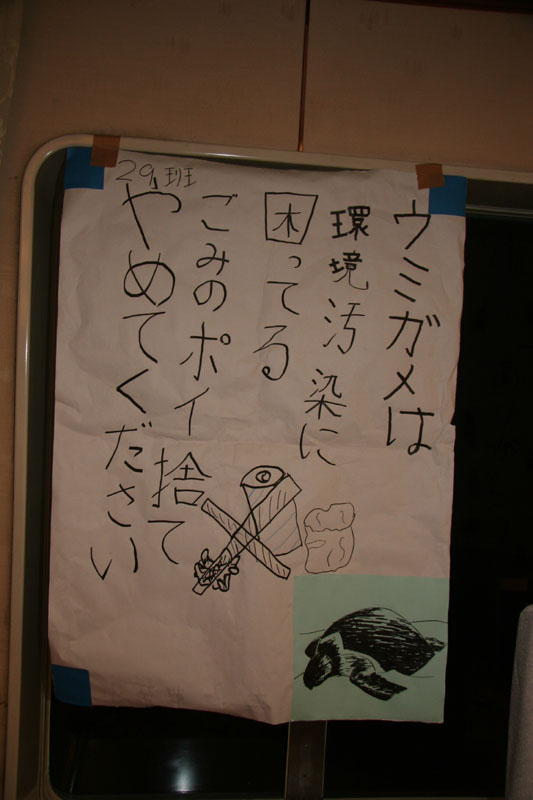 ウミガメは
環境汚染に
困ってる
ごみのポイ捨て
やめてください
29班